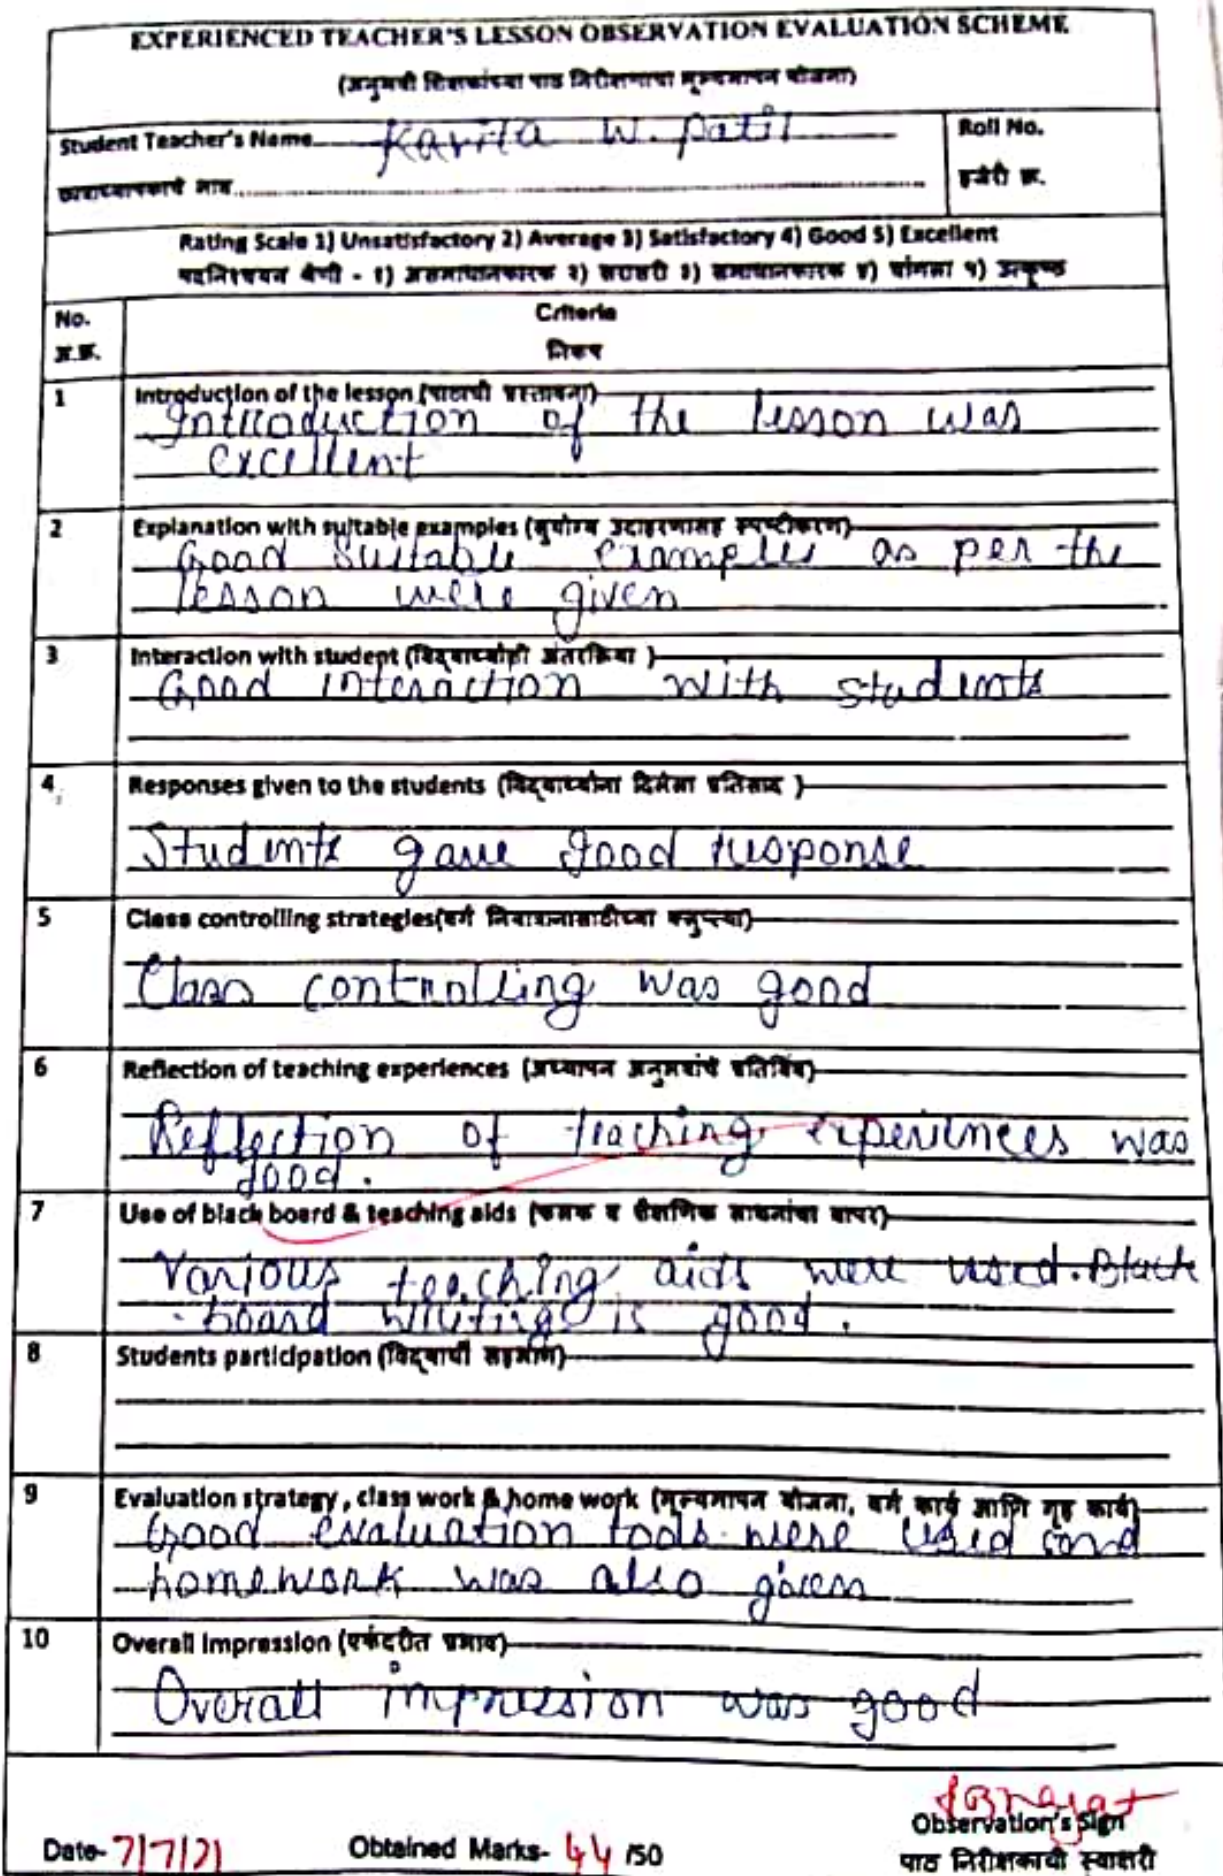 EXPERIENCED TEACHER'S LESSON OBSERVATION EVALUATION SCHEME
(अनुभवी शिक्षकांच्या पाठ निरीक्षणाचा मूल्यमापन योजना)
Student Teacher's Name Kavita W. Patil
Roll No.
छात्राध्यापकाचे नाव
हजेरी क्र.
Rating Scale 1) Unsatisfactory 2) Average 3) Satisfactory 4) Good 5) Excellent
पदनिश्चयन श्रेणी - १) असमाधानकारक २) सरासरी ३) समाधानकारक ४) चांगला ५) उत्कृष्ठ
No. Criteria
अ.क्र. निकष
1 Introduction of the lesson (पाठाची प्रस्तावना)
Introduction of the lesson was
excellent
2 Explanation with suitable examples (सुयोग्य उदाहरणासह स्पष्टीकरण)
Good Suitable examples as per the
lesson were given
3 Interaction with student (विद्यार्थ्यांशी अंतरक्रिया )
Good interaction with students
4 Responses given to the students (विद्यार्थ्यांना दिलेला प्रतिसाद )
Students gave good response
5 Class controlling strategies(वर्ग
Class controlling was good
6 Reflection of teaching experiences (अध्यापन अनुभवांचे प्रतिबिंब)
Reflection of teaching experiences was
good.
7 Use of black board & teaching aids (फलक व शैक्षणिक साधनांचा वापर)
Various teaching aids were used. Black
board writing is good.
8 Students participation (विद्यार्थी सहभाग)
9 Evaluation strategy, class work & home work (मूल्यमापन योजना, वर्ग कार्य आणि गृह कार्य)
Good evaluation tools were used and
homework was also given
10 Overall Impression (एकंदरीत प्रभाव)
Overall impression was good
Observation's Sign
Date- 7/7/21 Obtained Marks- 44 /50
पाठ निरीक्षकाची स्वाक्षरी